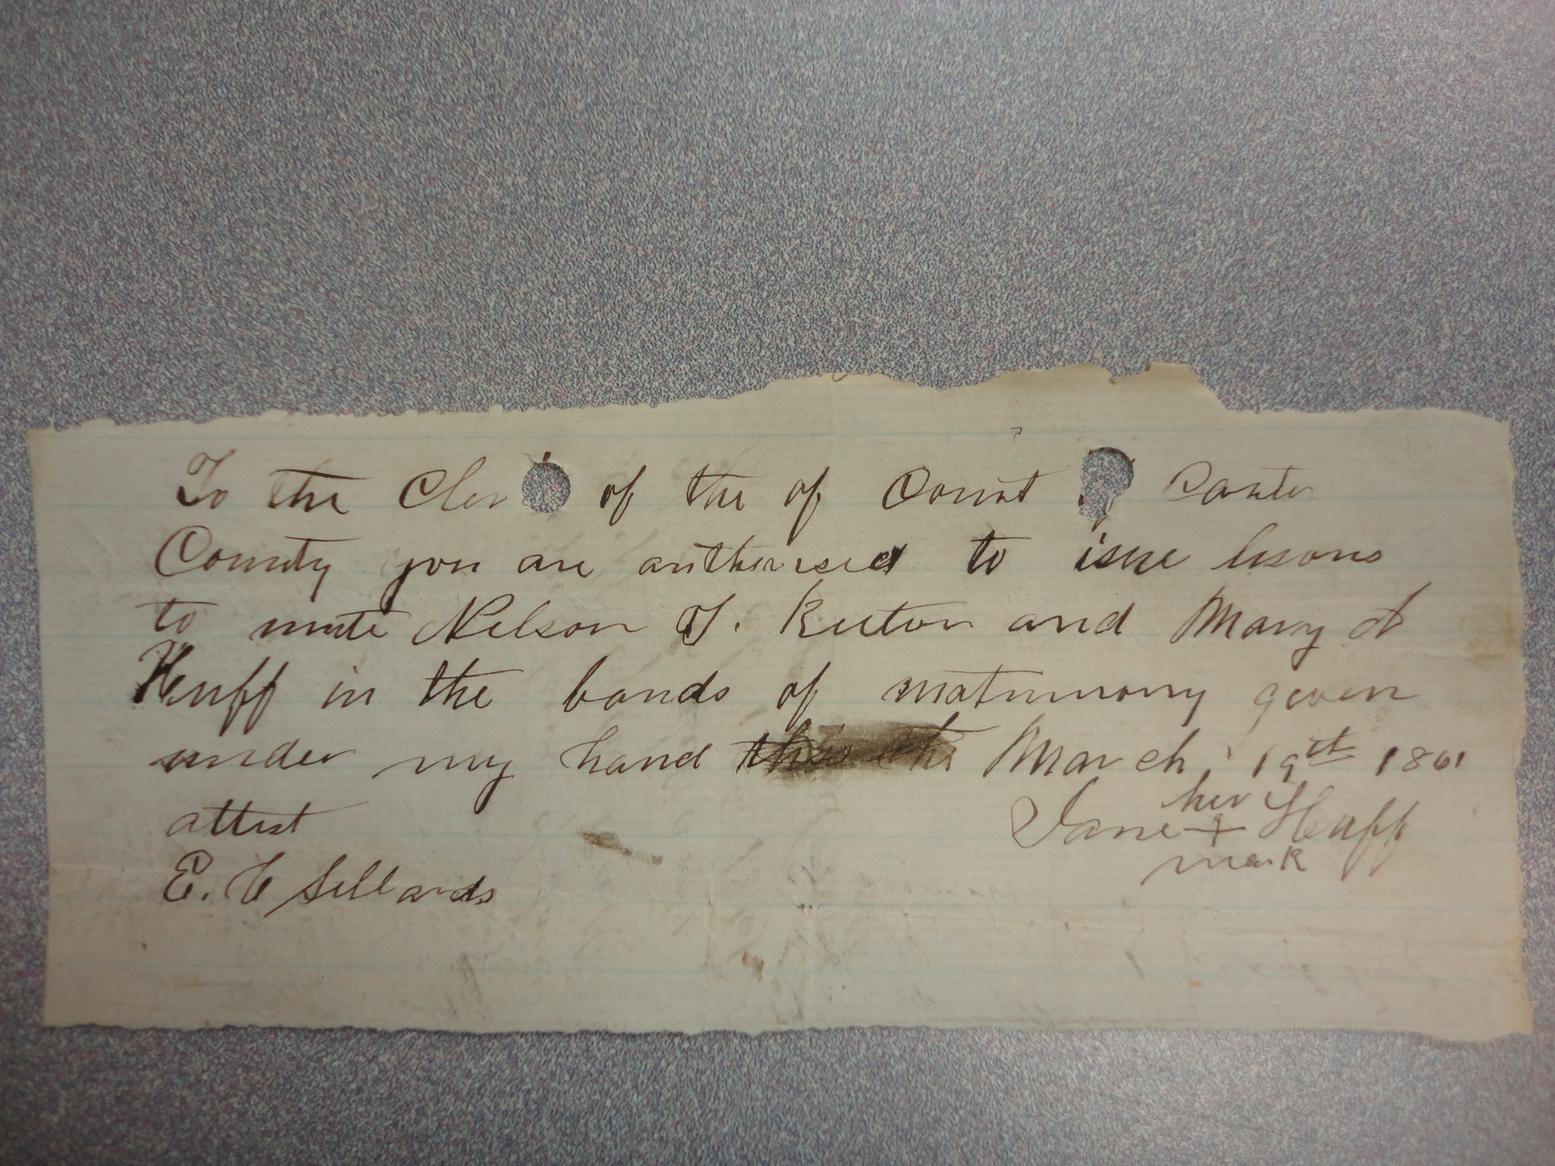 To the Cler of the of Count Carter
County you are authorised to isue lisons
to unite Nelson T. Keeton and Mary A
Huff in the bands of matrimony given
under my hand this the March, 19th 1861
her
attest Jane + Huff
mark
E. C Sellards